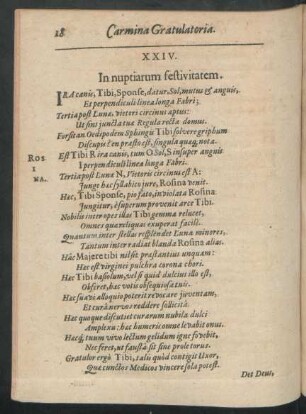 18 Carmina Gratulatoria.
XXIV.
In nuptiarum festivitatem.
IRA canis, Tibi, Sponse, datur, Sol, mutus & anguis,
Et perpendiculi linea longa Fabri;
Tertia post Lunæ, vitrei circinus aptus:
Ut sint juncta tuæ Regula recta domus.
Forsitan Oedipodem Sphingis Tibi solvere gryphum
Discupis? en præsto est, singula quæq; nota.
Est Tibi R ira canis, tum O Sol, S insuper anguis
I perpendiculi linea longa Fabri.
Tertia post Lunæ N, Vitrei circinus est A:
Junge hac syllabico jure, Rosina venit.
ROS
I
NA.
Hac, Tibi Sponse, pio fato, inviolata Rosina
Jungitur, è superum provenit arce Tibi.
Nobilis inter opes illas Tibi gemma relucet,
Omnes quæ reliquas exuperat facilè.
Quantum inter stellas resplendet Luna minores,
Tantum inter radiat blanda Rosina alias.
Hâc Majere tibi nil sit præstantius unquam:
Hac est virginei pulchra corona chori.
Hac Tibi basiolum, vel si quid dulcius illo est,
Offeret, hac votis obsequiosa tuis.
Hac suavi alloquio poterit revocare juventam,
Et curâ nervos reddere sollicitâ.
Hac quoque discutiet curarum nubila dulci
Amplexu: hac humeri conne levabit onus.
Hacq́; tuum vivo lectum gelidum igne fovebit,
Nec feret, ut faustâ sit sine prole torus.
Grator ergò Tibi, talis quòd contigit Uxor,
Quæ cunctos Medicos vincere sola potest.
Det Deus,